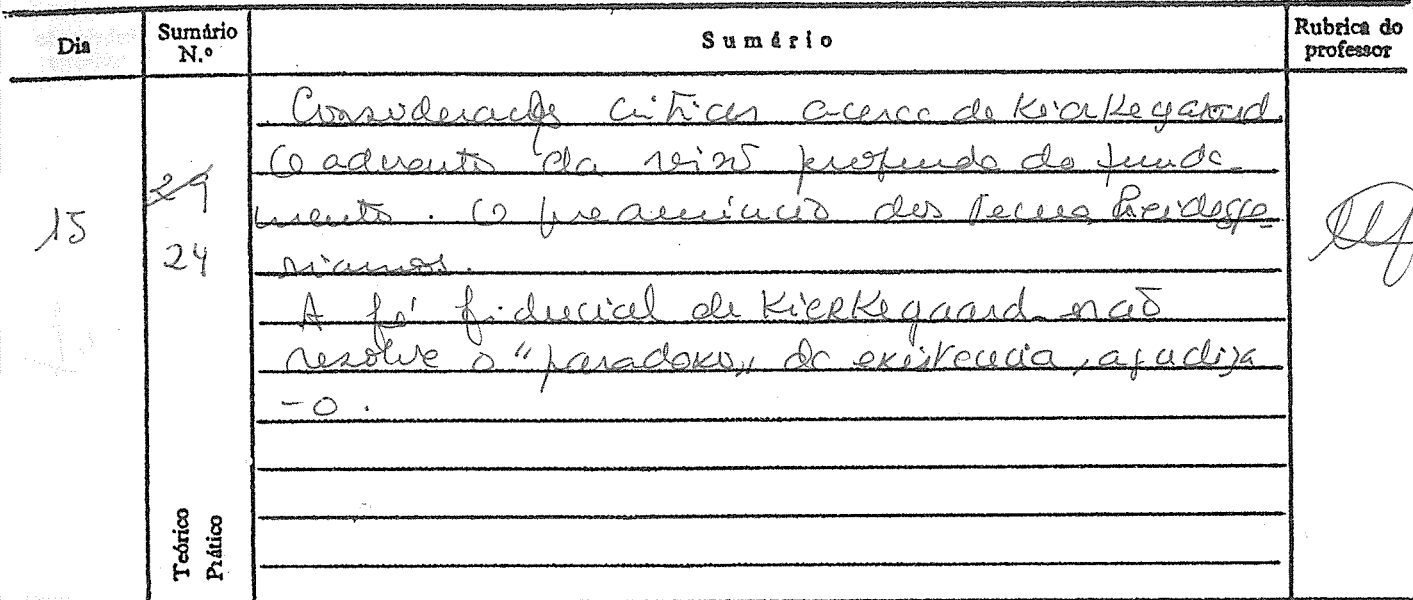 Dia Sumário N.º Sumário Rubrica do professor
Considerações críticas acerca de Kierkegaard.
O advento da visão profunda do funda-
15 29 mento. O preanúncio dos temas heidegge-
24 rianos.
A fé fiducial de Kierkegaard não
resolve o "paradoxo" da existência, agudiza
-o.
Teórico
Prático